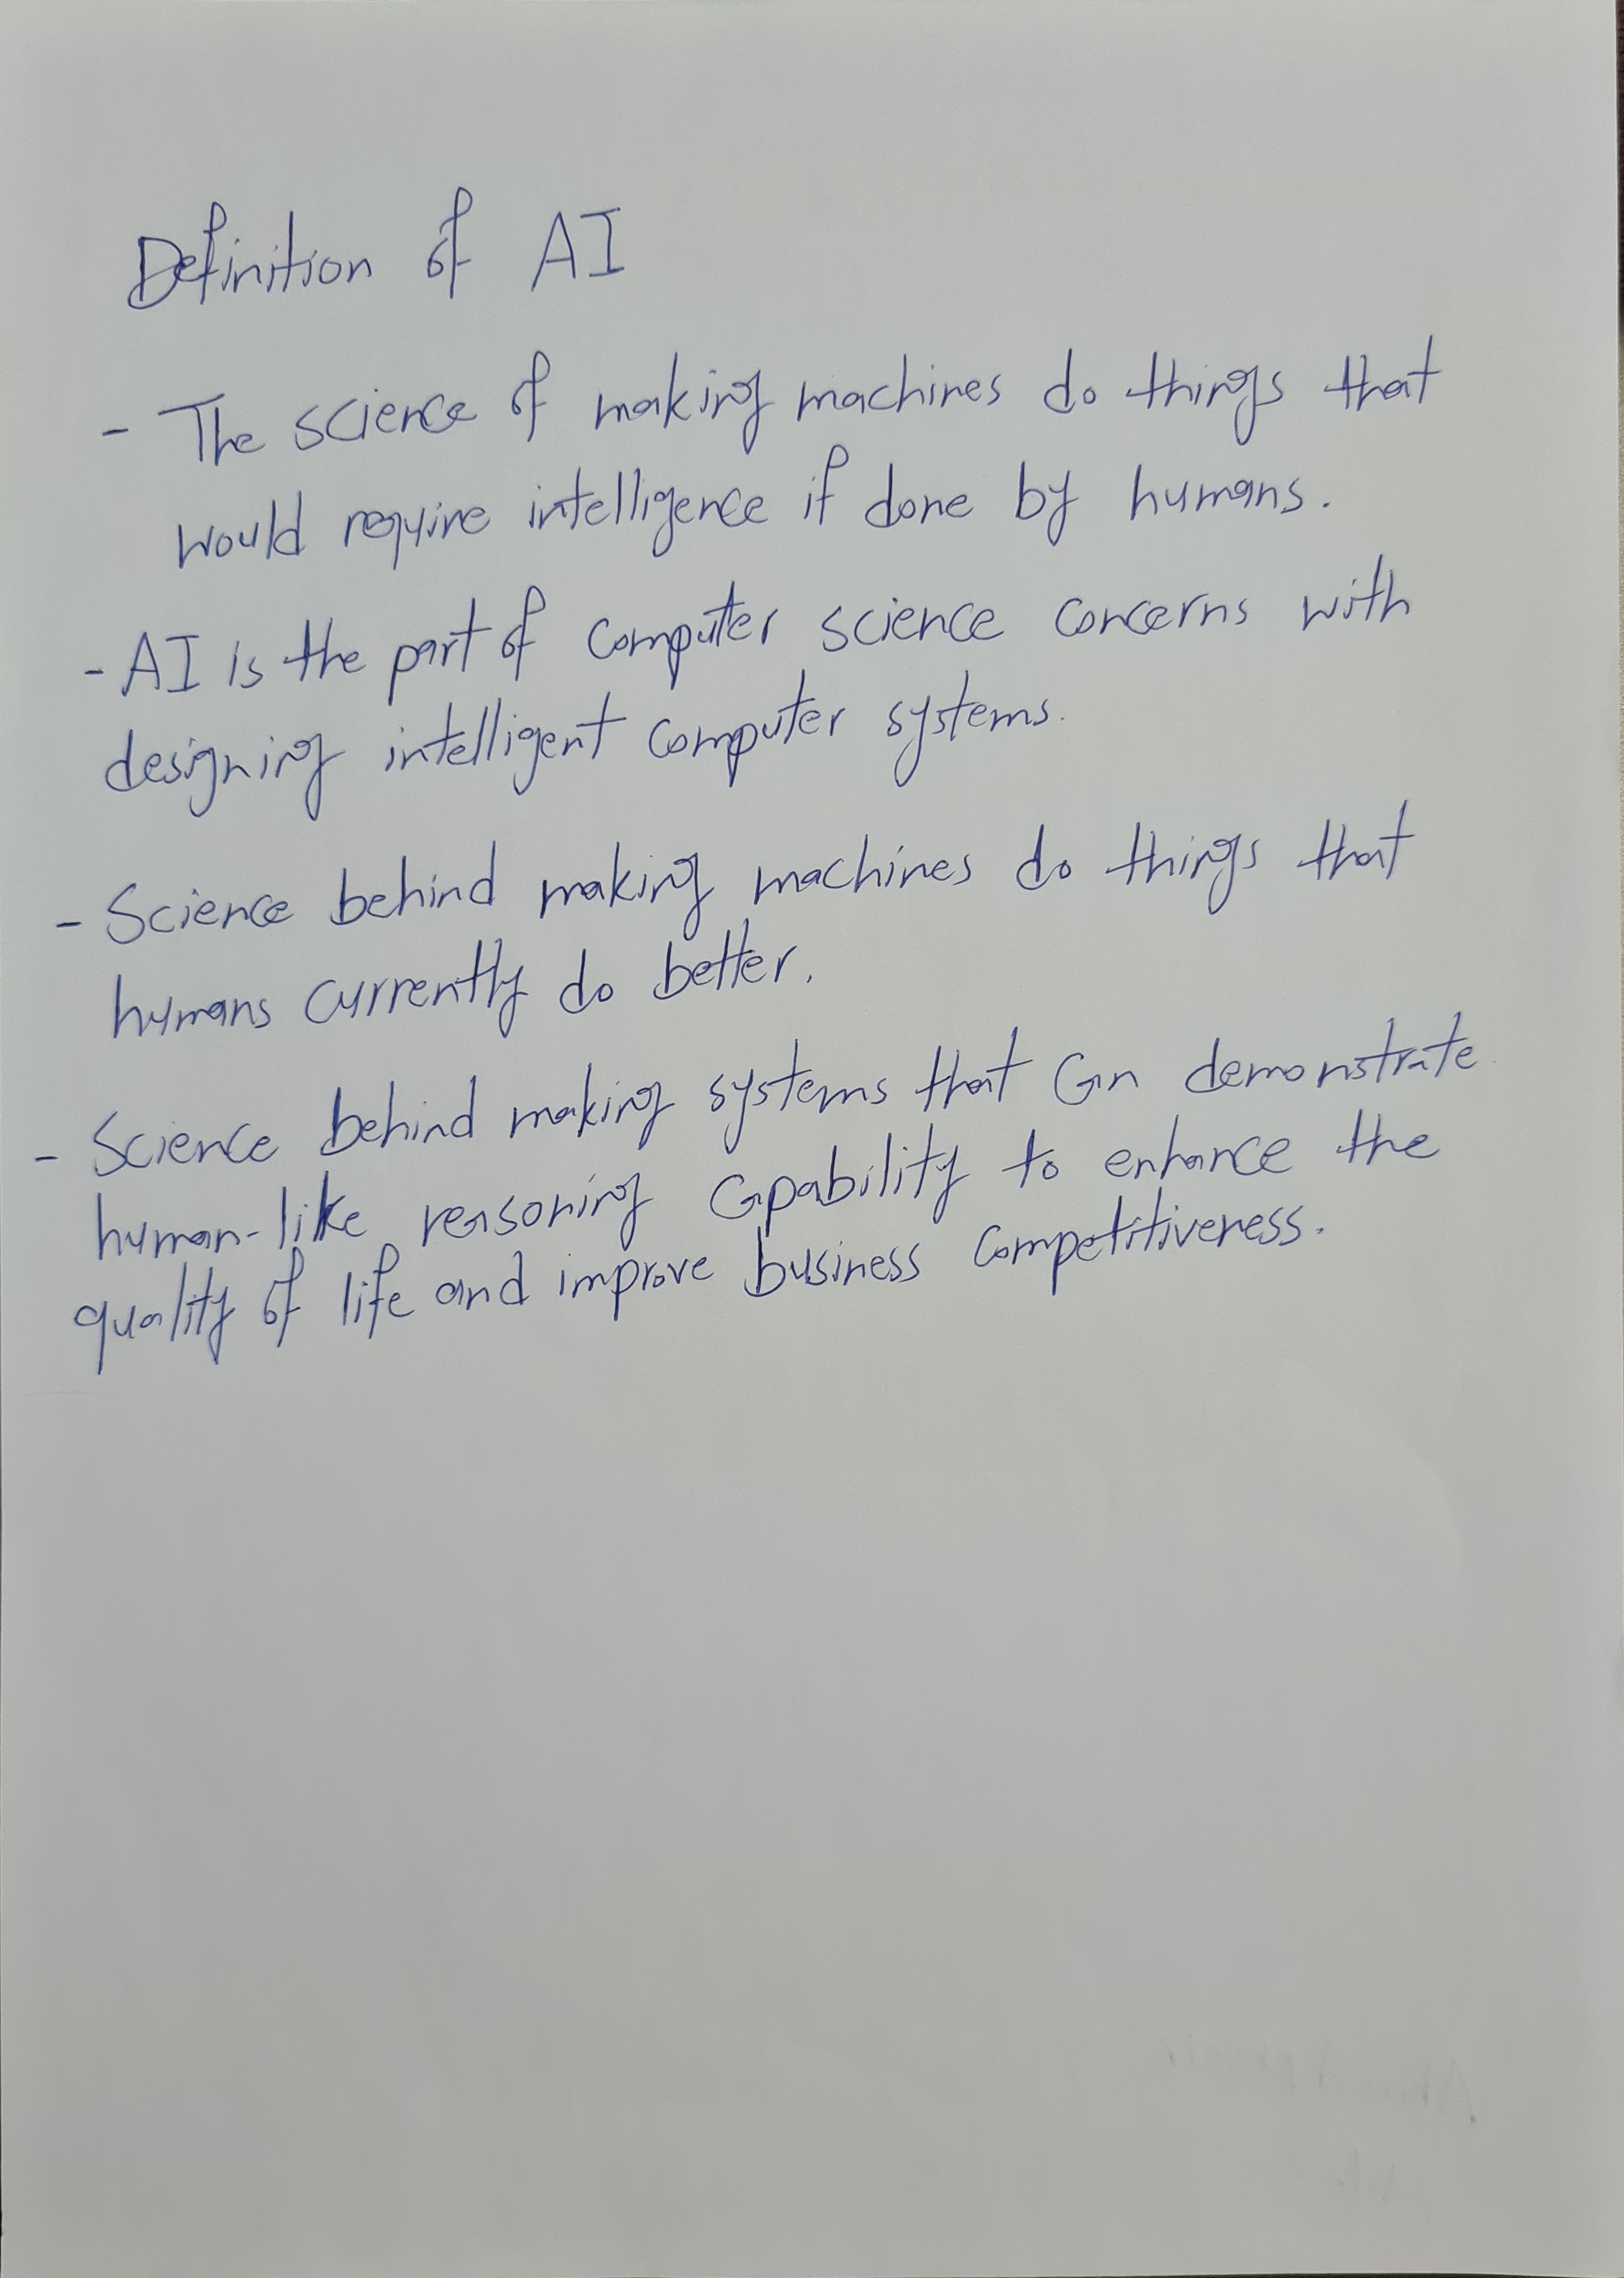 Definition of AI
- The science of making machines do things that
would require intelligence if done by humans.
- AI is the part of computer science concerns with
designing intelligent computer systems.
- Science behind making machines do things that
humans currently do better.
- Science behind making systems that can demonstrate
human-like reasoning capability to enhance the
quality of life and improve business competitiveness.